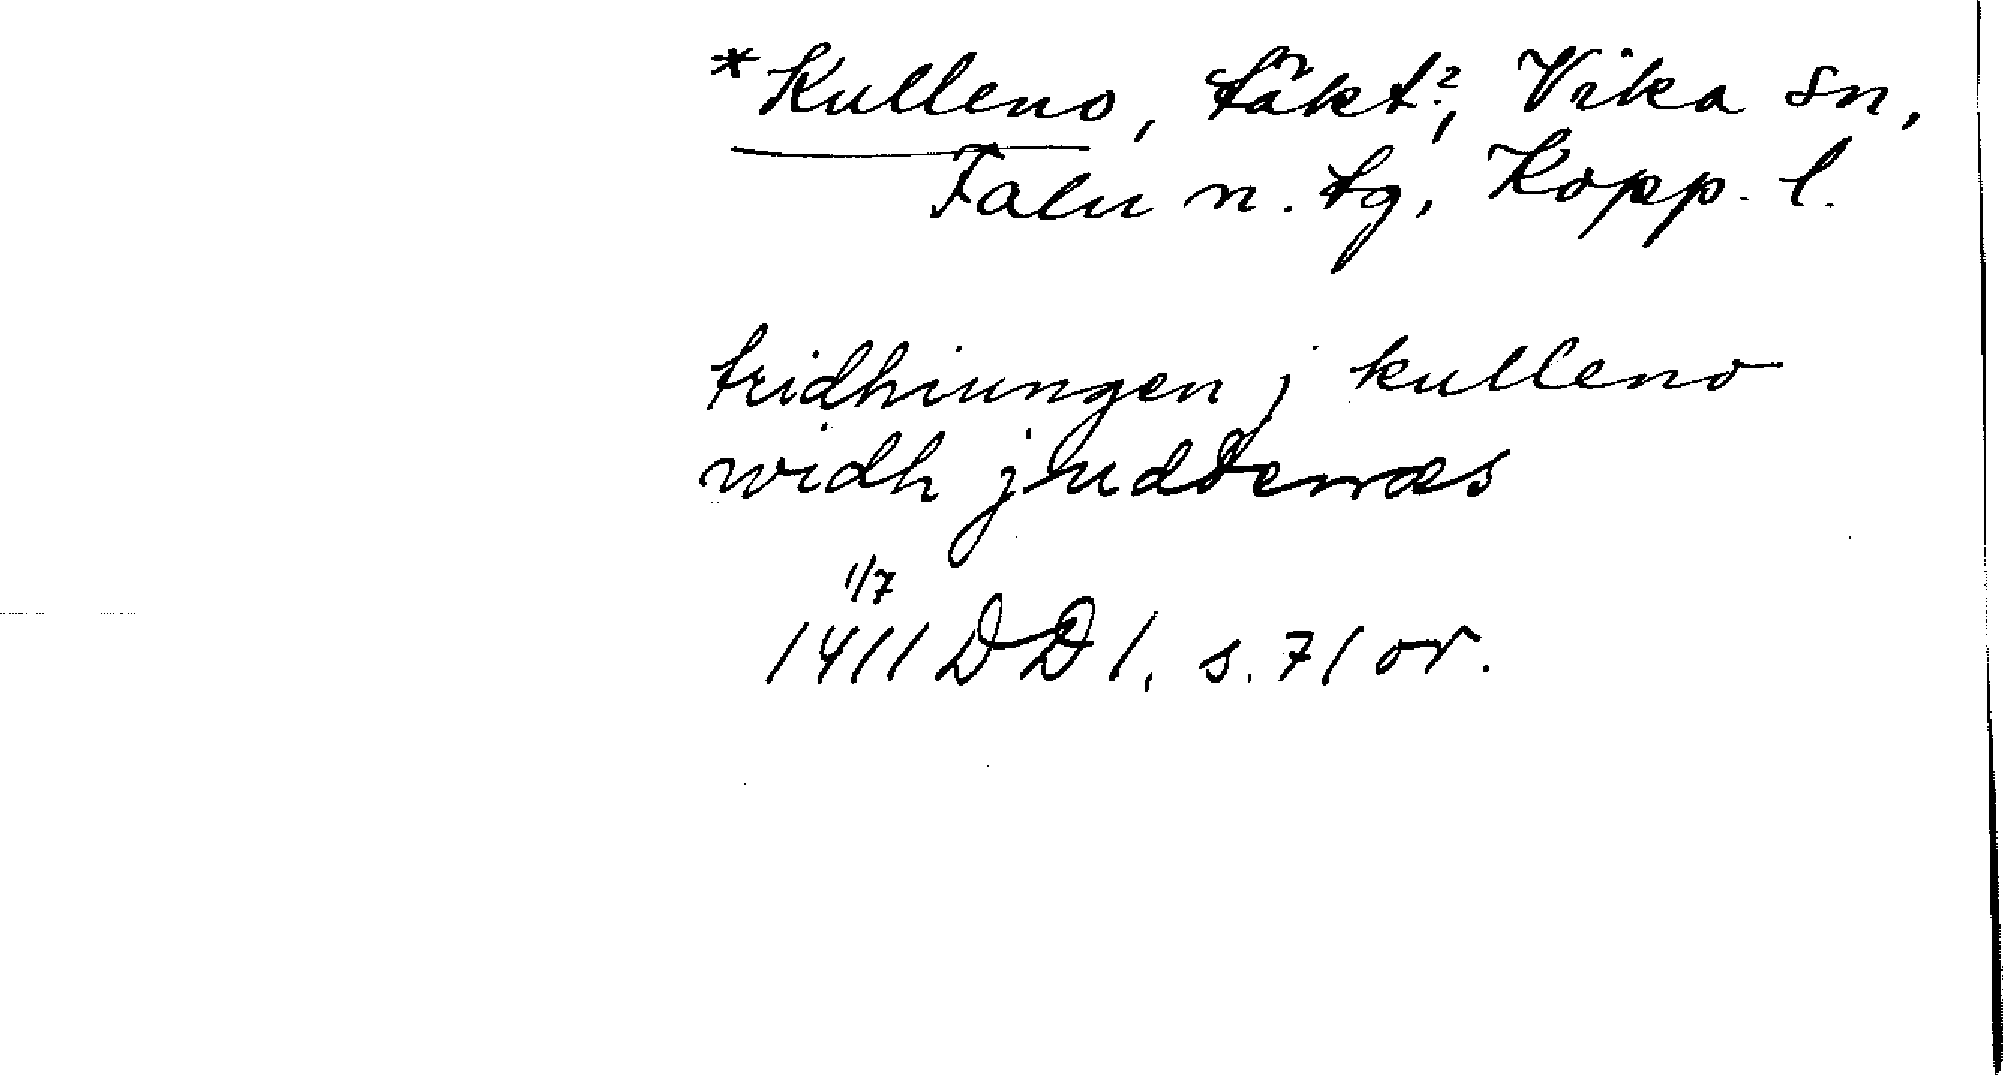 *Kulleno, täkt?, Vika sn,
Falu n. tg, Kopp. l.
tridhiungen j kulleno
widh judtenæs
1/7
1411 DD 1, s. 71 or.